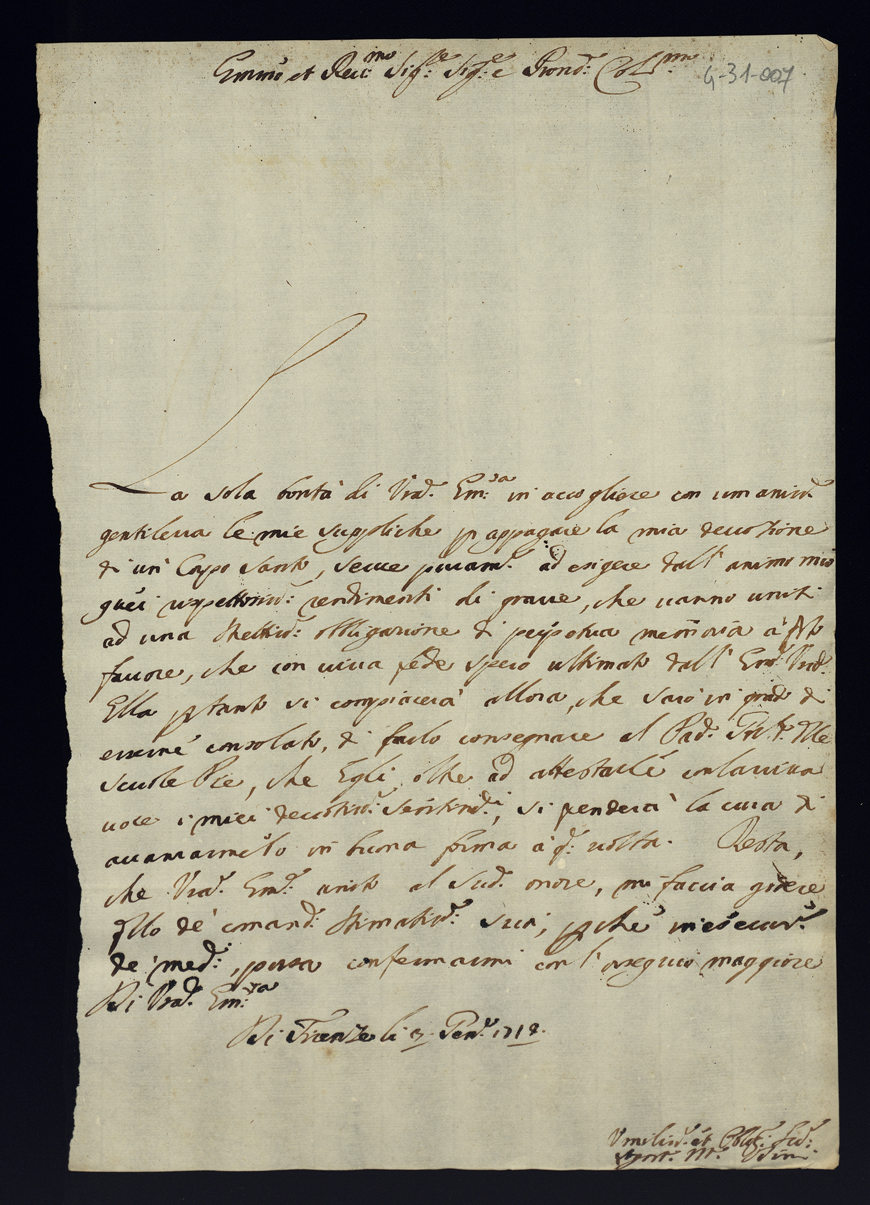 Emin͞o et Reu:mo Sig:re Sig:re e Pron: Col:mo
G-31-007
La sola bontà di Vra. Em:za in accogliere con umaniss:
gentilezza le mie suppliche p appagare la mia deuozione
di un' Corpo Santo, serue puram: ad esigere dall' animo mio
quei rispettosiss: rendimenti di grazie, che uanno uniti
ad una strettiss: obbligazione di perpetua memoria à
fauore, che con uiua fede spero ultimato dall' Em: Vra:
Ella p tanto si compiacerà allora, che sarò in grado di
esserne consolato, di farlo consegnare al Pad: delle
Scuole Pie, che Egli oltre ad attestarle con la uiua
uoce i miei deuotiss: sentim:ti, si prenderà la cura di
auanzarmelo in buona forma à q: uolta. Resta,
che Vra: Em: unito al Sud: onore, mi faccia godere
q:llo de' comand: stimatiss: suoi, p che in esecuz:
de' med:, possa confermarmi con l'ossequio maggiore
Di Vra: Em:za
Di Firenze li 3 Gen: 1718.
Vmiliss: et Obblig: Ser: